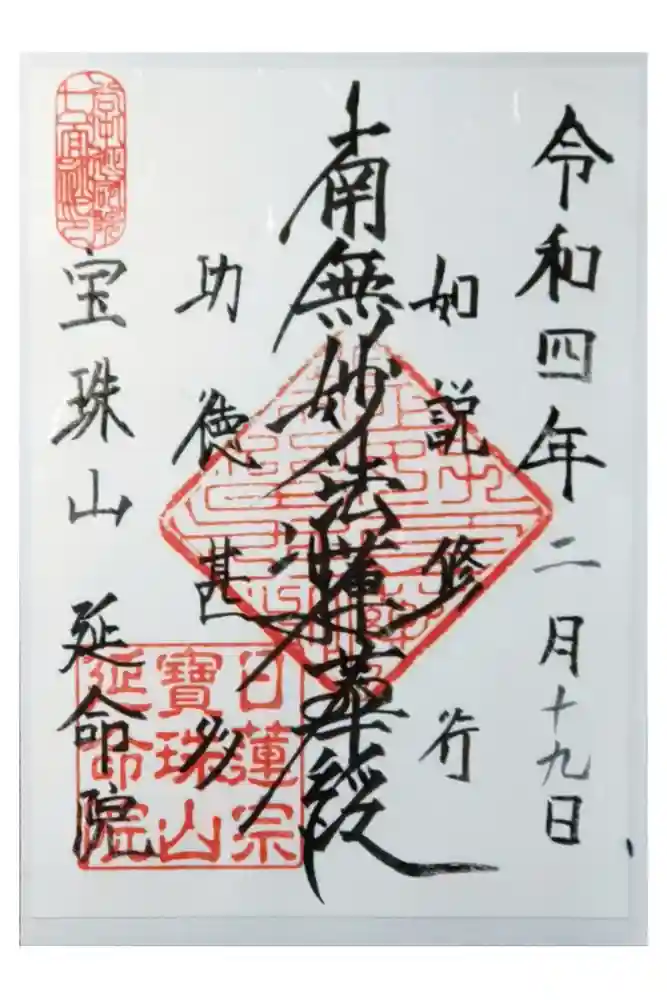 令和四年二月十九日
如説修行
南無妙法蓮華経
功徳甚多
宝珠山 延命院
日蓮宗
寶珠山
延命院